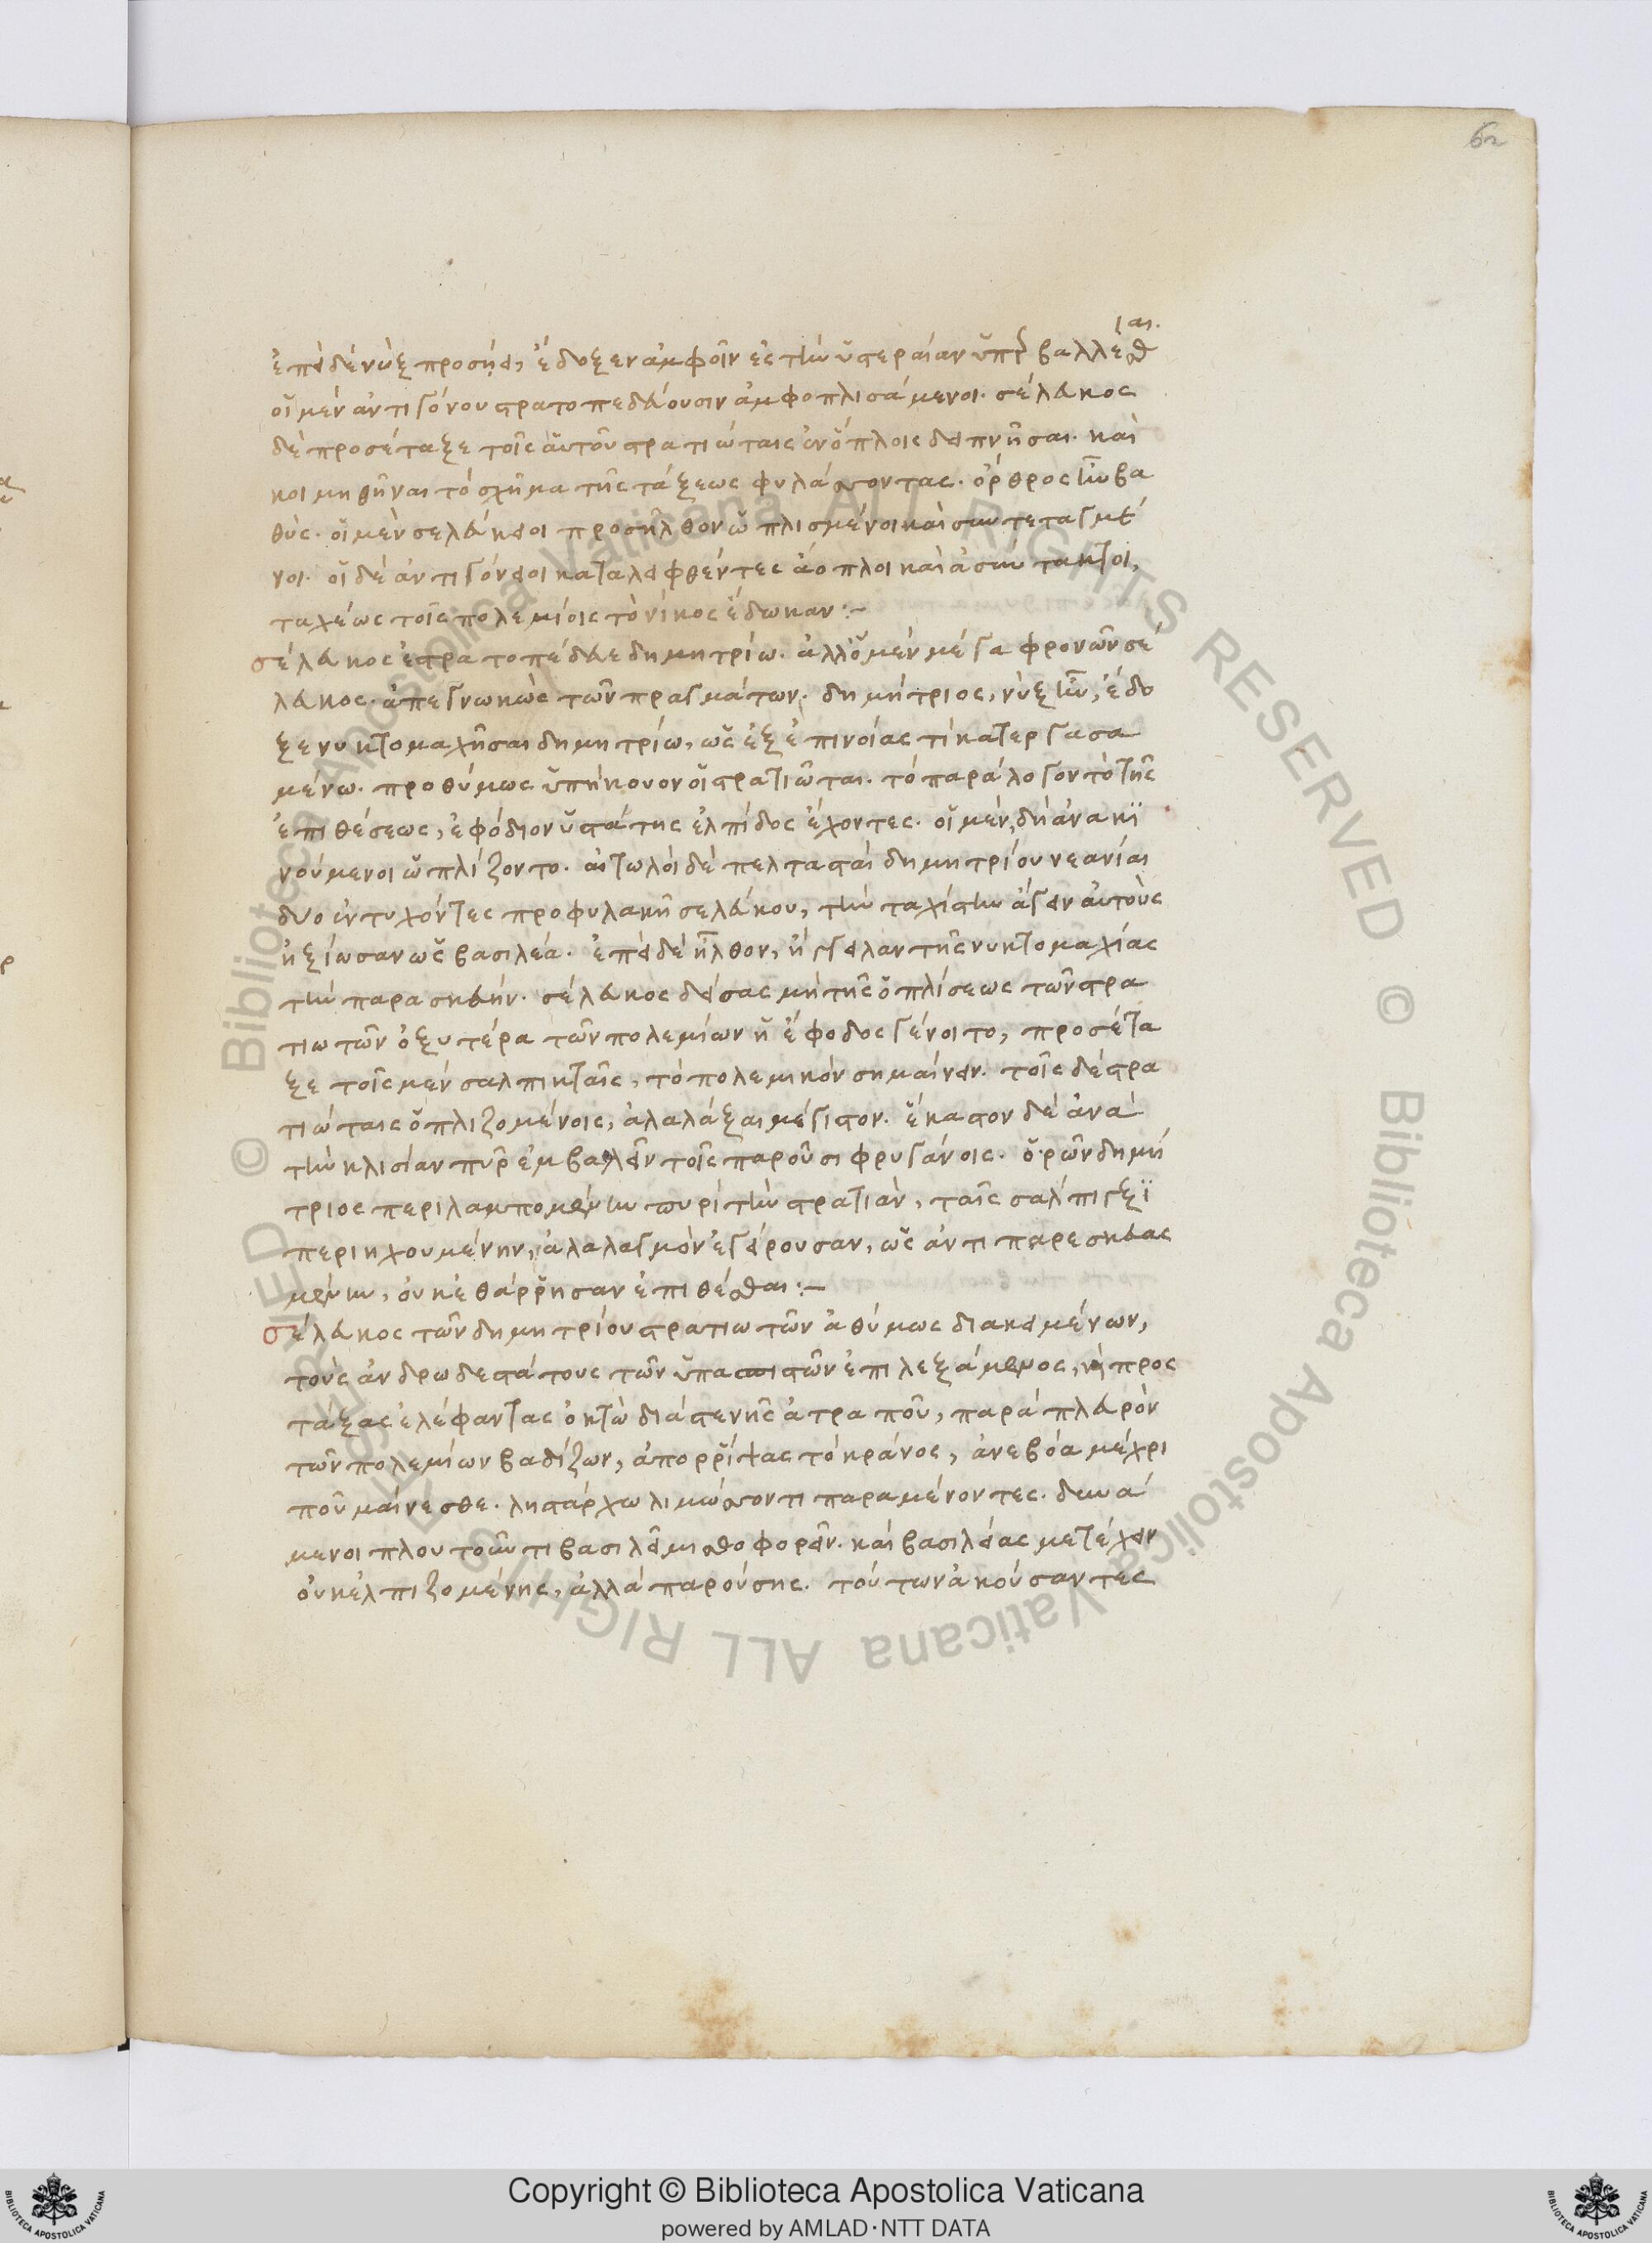 62
ἐπεὶ δὲ νὺξ προσῄει, ἔδοξεν ἀμφοῖν ἐς τὴν ὑστεραίαν ὑπερβαλλεσθ
|αι.
οἱ μὲν ἀντιγόνου στρατοπεδεύουσιν ἀμφοπλισάμενοι. σέλευκος
δὲ προσέταξε τοῖς αὑτοῦ στρατιώταις ἐν ὅπλοις δειπνῆσαι. καὶ
κοιμηθῆναι τὸ σχῆμα τῆς τάξεως φυλάττοντας. ὄρθρος ἦν βα
θύς. οἱ μὲν σελεύκειοι προσῆλθον ὡπλισμένοι καὶ συντεταγμέ
νοι. οἱ δὲ ἀντιγόνειοι καταλειφθέντες ἄοπλοι καὶ ἀσύντακτοι,
ταχέως τοῖς πολεμίοις τὸ νῖκος ἔδωκαν :-
σέλευκος ἐστρατοπέδευε δημητρίω. ἀλλ' ὁ μὲν μέγα φρονῶν σέ
λευκος. ἀπεγνωκὼς τῶν πραγμάτων. δημήτριος, νὺξ ἦν, ἔδο
ξε νυκτομαχῆσαι δημητρίω, ὡς ἐξ ἐπινοίας τὶ κατεργασα
μένω. προθύμως ὑπήκουον οἱ στρατιῶται. τὸ παράλογον τὸ τῆς
ἐπιθέσεως, ἐφόδιον ὑστάτης ἐλπίδος ἔχοντες. οἱ μὲν δὴ ἀνακι
νούμενοι ὡπλίζοντο. αἰτωλοὶ δὲ πελτασταὶ δημητρίου νεανίαι
δυο ἐντυχόντες προφυλακῆ σελεύκου, τὴν ταχίστην ἄγειν αὐτοὺς
ἠξίωσαν ὡς βασιλέα. ἐπεὶ δὲ ἦλθον, ἤγγειλαν τῆς νυκτομαχίας
τὴν παρασκευήν. σέλευκος δείσας μὴ τῆς ὁπλίσεως τῶν στρα
τιωτῶν ὀξυτέρα τῶν πολεμίων ἡ ἔφοδος γένοιτο, προσέτα
ξε τοῖς μὲν σαλπικταῖς, τὸ πολεμικὸν σημαίνειν. τοῖς δὲ στρα
τιώταις ὁπλιζομένοις, ἀλαλάξαι μέγιστον. ἕκαστον δὲ ἀνὰ
τὴν κλισίαν πῦρ ἐμβαλεῖν τοῖς παροῦσι φρυγάνοις. ὁρῶν δημή
τριος περιλαμπομένην πυρὶ τὴν στρατιὰν, ταῖς σάλπιγξι
περιηχουμένην, ἀλαλαγμὸν ἐγείρουσαν, ὡς ἀντιπαρεσκευας
μένην, οὐκ ἐθάρρησαν ἐπιθέσθαι :-
σέλευκος τῶν δημητρίου στρατιωτῶν ἀθύμως διακειμένων,
τοὺς ἀνδρωδεστάτους τῶν ὑπασπιστῶν ἐπιλεξάμενος, καὶ προς
τάξας ἐλέφαντας ὀκτὼ διὰ στενῆς ἀτραποῦ, παρὰ πλευρὸν
τῶν πολεμίων βαδίζων, ἀπορρίψας τὸ κράνος, ἀνεβόα μέχρι
ποῦ μαίνεσθε. ληστάρχω λιμώττοντι παραμένοντες. δυνά
μενοι πλουτοῦντι βασιλεῖ μισθοφορεῖν. καὶ βασιλείας μετέχειν
οὐκ ἐλπιζομένης, ἀλλὰ παρούσης. τούτων ἀκούσαντες
Copyright © Biblioteca Apostolica Vaticana
powered by AMLAD·NTT DATA
© Biblioteca Apostolica Vaticana ALL RIGHTS RESERVED © Biblioteca Apostolica Vaticana ALL RIGHTS RESERVED
BIBLIOTECA APOSTOLICA VATICANA
BIBLIOTECA APOSTOLICA VATICANA